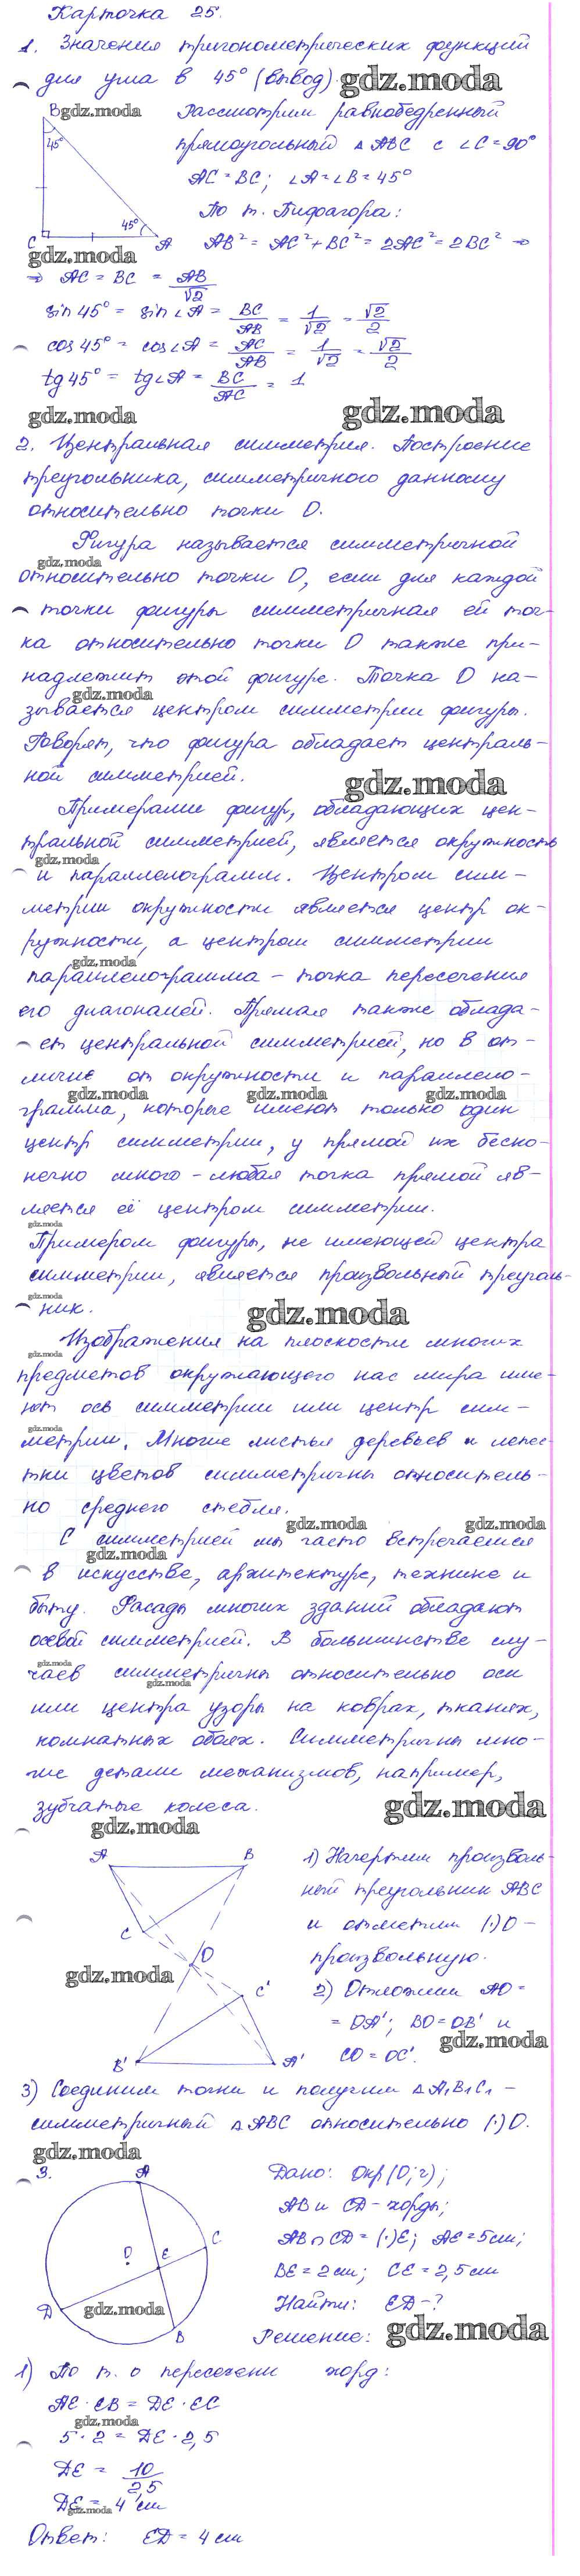 Карточка 25.
1. Значения тригонометрических функций
для угла в 45° (вывод). gdz.moda
B gdz.moda Рассмотрим равнобедренный
45° прямоугольный △ABC с ∠C = 90°
AC = BC; ∠A = ∠B = 45°
45° По т. Пифагора:
C A AB² = AC² + BC² = 2AC² = 2BC² ⇒
gdz.moda
⇒ AC = BC = AB/√2
sin 45° = sin ∠A = BC/AB = 1/√2 = √2/2
cos 45° = cos ∠A = AC/AB = 1/√2 = √2/2
tg 45° = tg ∠A = BC/AC = 1
gdz.moda gdz.moda
2. Центральная симметрия. Построение
треугольника, симметричного данному
относительно точки O.
Фигура называется симметричной
gdz.moda
относительно точки O, если для каждой
точки фигуры симметричная ей точ-
ка относительно точки O также при-
надлежит этой фигуре. Точка O на-
gdz.moda
зывается центром симметрии фигуры.
Говорят, что фигура обладает централь-
ной симметрией. gdz.moda
Примерами фигур, обладающих цен-
тральной симметрией, является окружность
gdz.moda
и параллелограмм. Центром сим-
метрии окружности является центр ок-
ружности, а центром симметрии
gdz.moda
параллелограмма – точка пересечения
его диагоналей. Прямая также облада-
ет центральной симметрией, но в от-
личие от окружности и параллело-
gdz.moda gdz.moda gdz.moda
грамма, которые имеют только один
центр симметрии, у прямой их беско-
нечно много – любая точка прямой яв-
ляется её центром симметрии.
gdz.moda
Примером фигуры, не имеющей центра
симметрии, является произвольный треуголь-
gdz.moda
ник. gdz.moda
Изображения на плоскости многих
gdz.moda
предметов окружающего нас мира име-
ют ось симметрии или центр сим-
gdz.moda
метрии. Многие листья деревьев и лепес-
тки цветов симметричны относитель-
но среднего стебля.
gdz.moda gdz.moda
С симметрией мы часто встречаемся
gdz.moda
в искусстве, архитектуре, технике и
быту. Фасады многих зданий обладают
осевой симметрией. В большинстве слу-
gdz.moda
чаев симметричны относительно оси
gdz.moda
или центра узоры на коврах, тканях,
комнатных обоях. Симметричны мно-
гие детали механизмов, например,
зубчатые колеса. gdz.moda
gdz.moda
A B 1) Начертим произволь-
ный треугольник ABC
C и отметим (·)O –
O произвольную.
gdz.moda
C' 2) Отложим AO =
= OA'; BO = OB' и
gdz.moda
B' A' CO = OC'.
3) Соединим точки и получим △A₁B₁C₁ –
симметричный △ABC относительно (·)O.
gdz.moda
3. A Дано: Окр(O; r);
AB и CD – хорды;
C AB ∩ CD = (·)E; AE = 5 см;
O E BE = 2 см; CE = 2,5 см
D gdz.moda Найти: ED – ?
B Решение: gdz.moda
1) По т. о пересечени хорд:
AE · EB = DE · EC
gdz.moda
5 · 2 = DE · 2,5
DE = 10/2,5
DE = 4 см
gdz.moda
Ответ: ED = 4 см